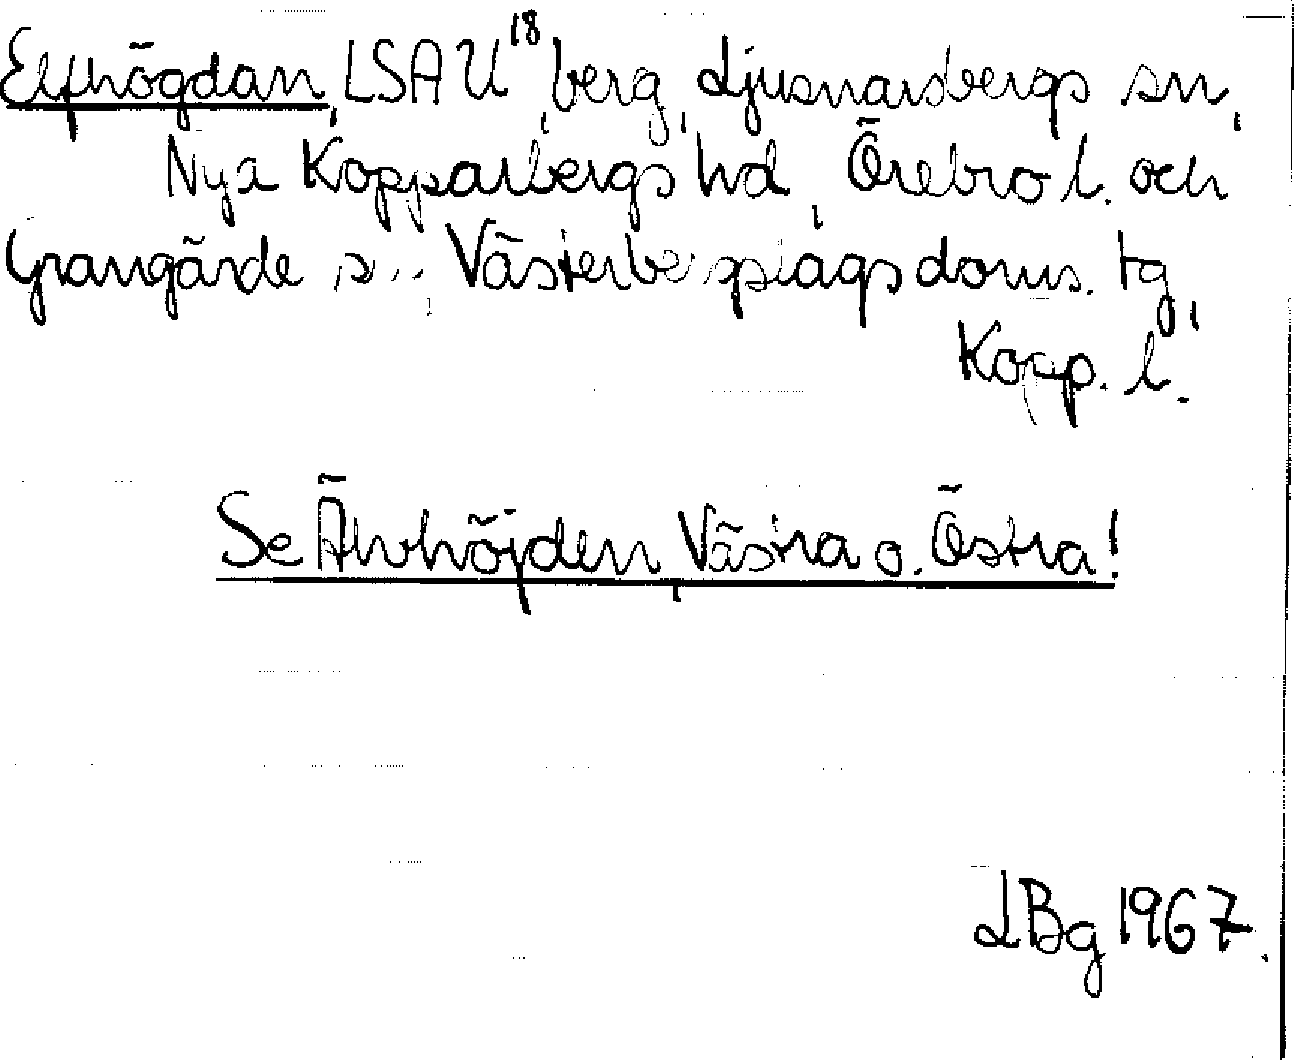 Elfhögdan, LSA U¹⁸, berg, Ljusnarsbergs sn,
Nya Kopparbergs hd, Örebro l. och
Grangärde sn, Västerbergslags doms. tg,
Kopp. l.
Se Älvhöjden, Västra o. Östra!
LBg 1967.